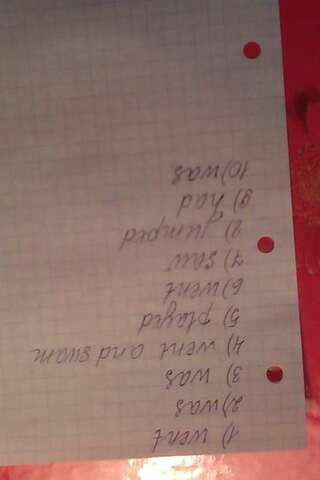 1) went
2) was
3) was
4) went and swam
5) played
6) went
7) saw
8) jumped
9) had
10) was